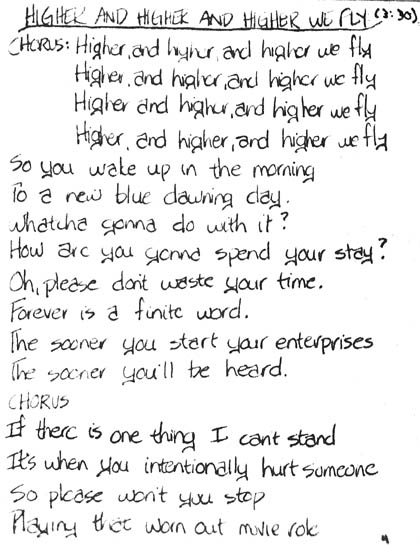 HIGHER AND HIGHER AND HIGHER WE FLY (3:30)
CHORUS: Higher, and higher, and higher we fly
Higher, and higher, and higher we fly
Higher and higher, and higher we fly
Higher, and higher, and higher we fly
So you wake up in the morning
To a new blue dawning day.
Whatcha gonna do with it?
How are you gonna spend your stay?
Oh, please don't waste your time.
Forever is a finite word.
The sooner you start your enterprises
The sooner you'll be heard.
CHORUS
If there is one thing I cant stand
It's when you intentionally hurt someone
So please won't you stop
Playing that worn out movie role